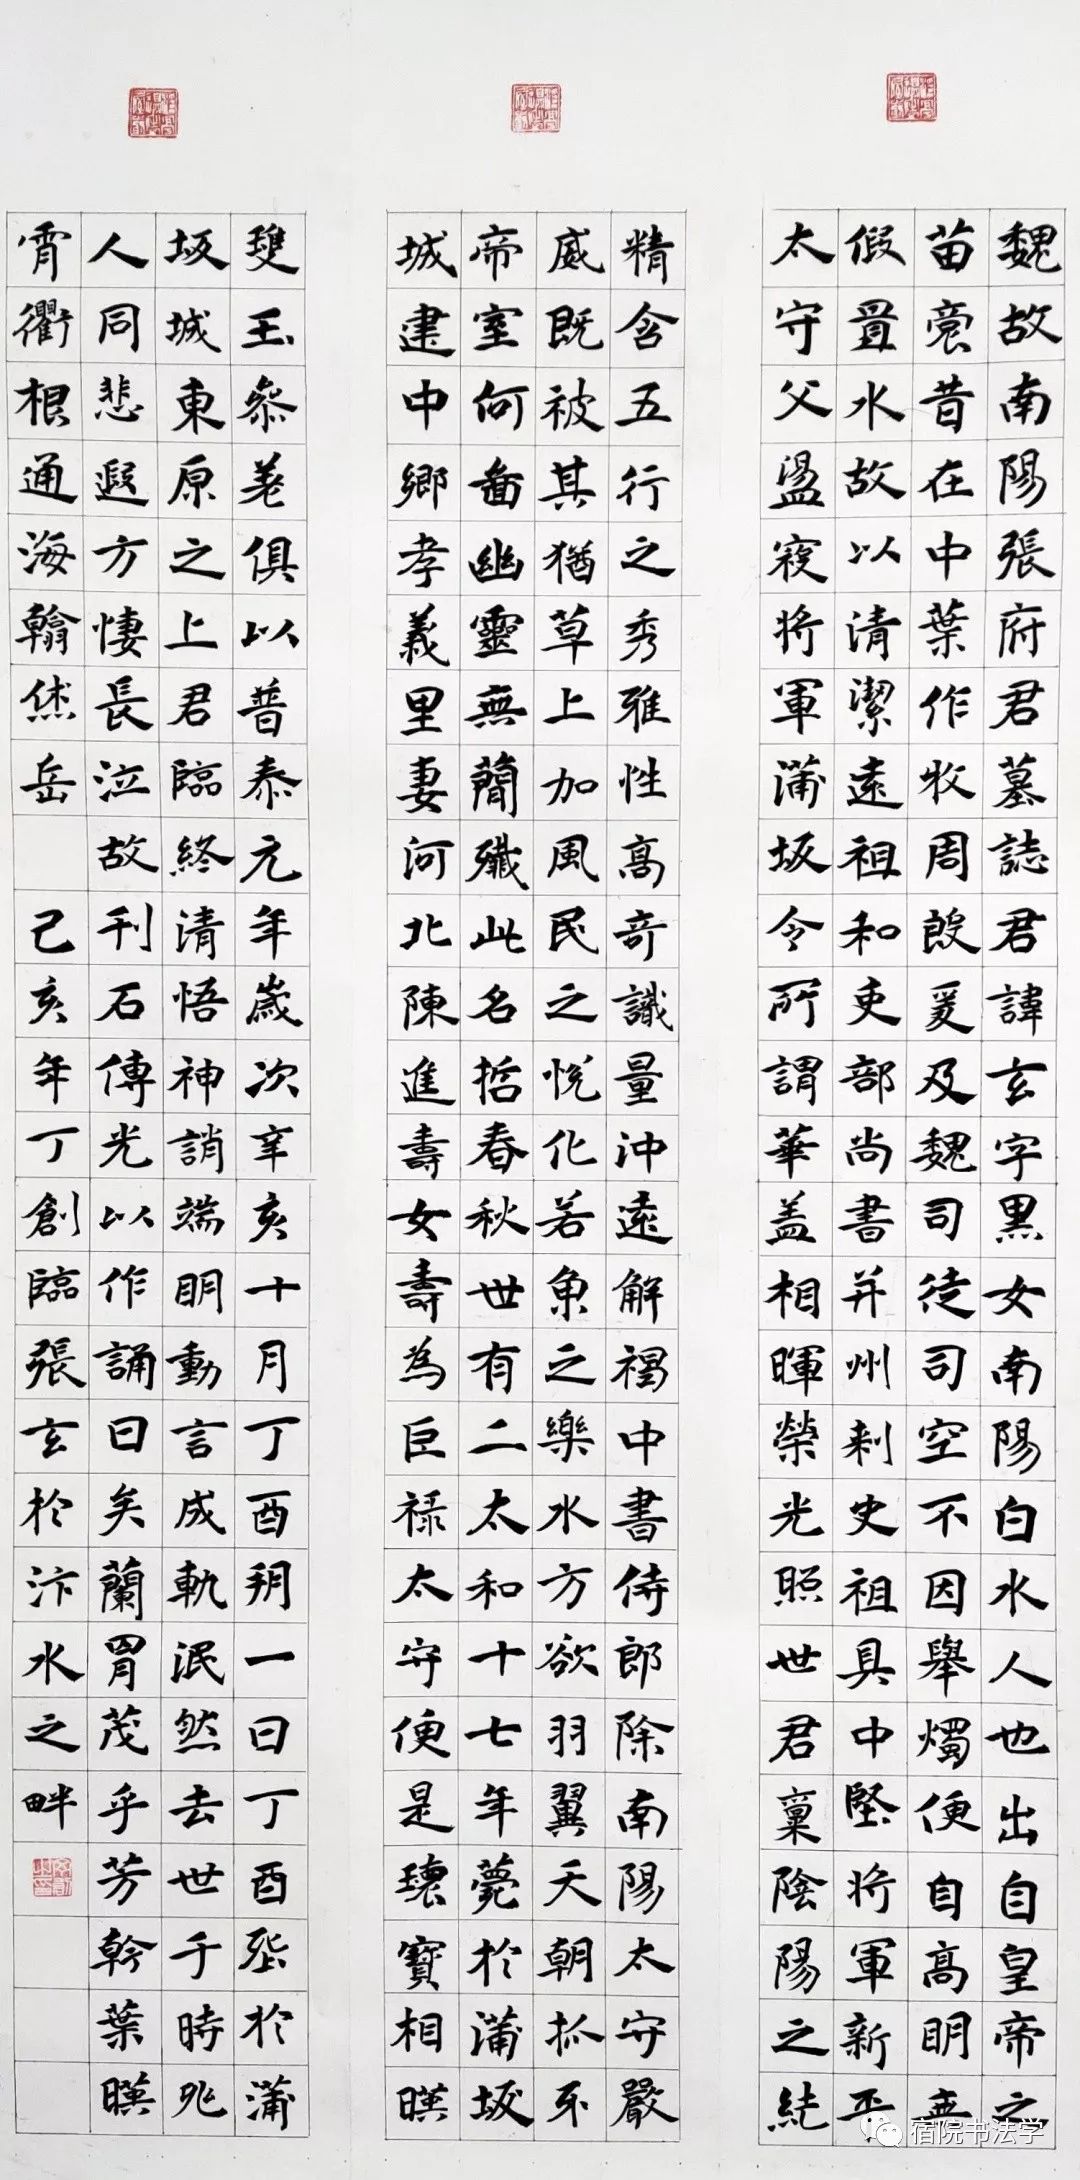 魏故南陽張府君墓誌君諱玄字黑女南陽白水人也出自皇帝之
苗裔昔在中葉作牧周殷爰及魏司徒司空不因舉燭便自高明無
假置水故以清潔遠祖和吏部尚書并州刺史祖具中堅將軍新平
太守父盪寇將軍蒲坂令所謂華盖相暉榮光照世君稟陰陽之純
精含五行之秀雅性高奇識量沖遠解褐中書侍郎除南陽太守嚴
威既被其猶草上加風民之悅化若魚之樂水方欲羽翼天朝抓牙
帝室何啚幽靈無簡殲此名哲春秋世有二太和十七年薨於蒲坂
城建中鄉孝義里妻河北陳進壽女壽為巨祿太守便是瓌寶相暎
雙玉參差俱以普泰元年歲次辛亥十月丁酉朔一日丁酉塟於蒲
坂城東原之上君臨終清悟神誚端明動言成軌泯然去世于時兆
人同悲遐方悽長泣故刊石傳光以作誦曰矣蘭胄茂乎芳幹葉暎
霄衢根通海翰然岳 己亥年丁創臨張玄於汴水之畔
宿院书法学